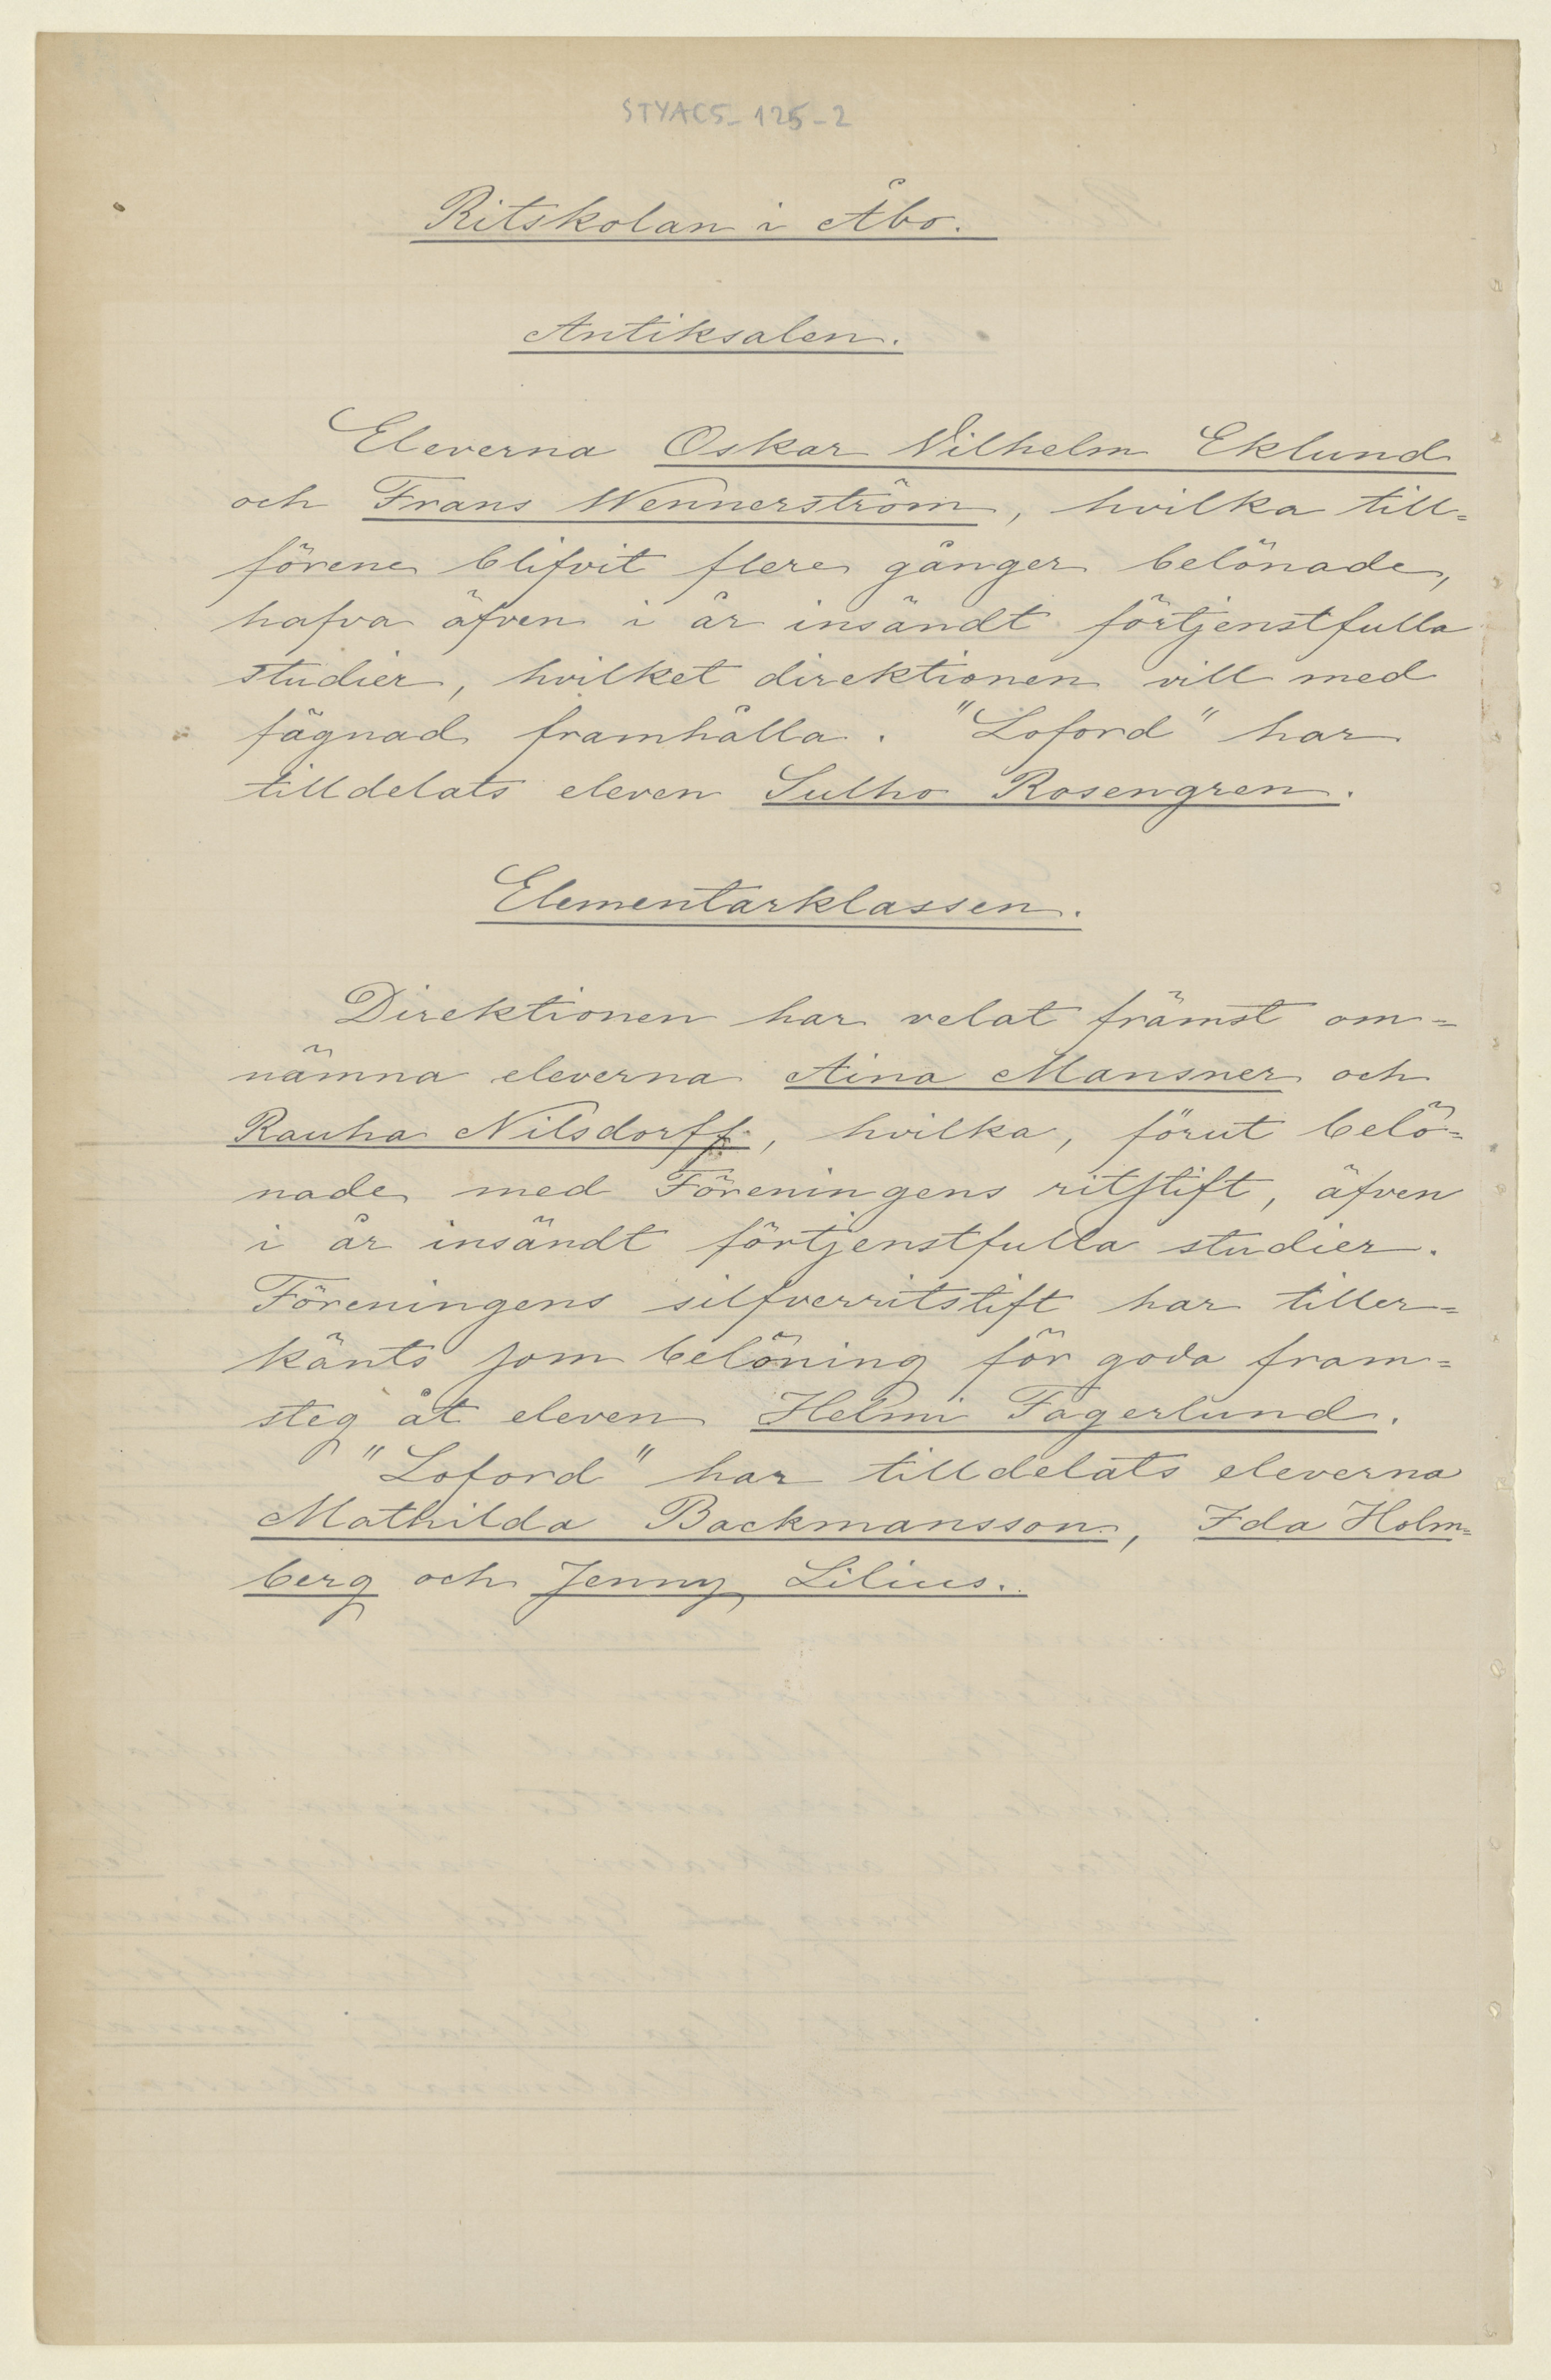 STYAC5-125-2
Ritskolan i Åbo.
Antiksalen.
Eleverna Oskar Vilhelm Eklund
och Frans Wennerström, hvilka till=
förene blifvit flere gånger belönade,
hafva äfven i år insändt förtjenstfulla
studier, hvilket direktionen vill med
fägnad framhålla. "Loford" har
tilldelats eleven Sulho Rosengren.
Elementarklassen.
Direktionen har velat främst om=
nämna eleverna Aina Mansner och
Rauha Nilsdorff, hvilka, förut belö=
nade med Föreningens ritstift, äfven
i år insändt förtjenstfulla studier.
Föreningens silfverritstift har tiller=
känts som belöning för goda fram=
steg åt eleven Helmi Fagerlund.
"Loford" har tilldelats eleverna
Mathilda Backmansson, Ida Holm=
berg och Jenny Lilius.